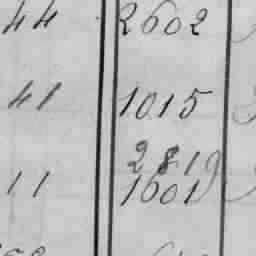 44 2602
41 1015
2819
11 1601